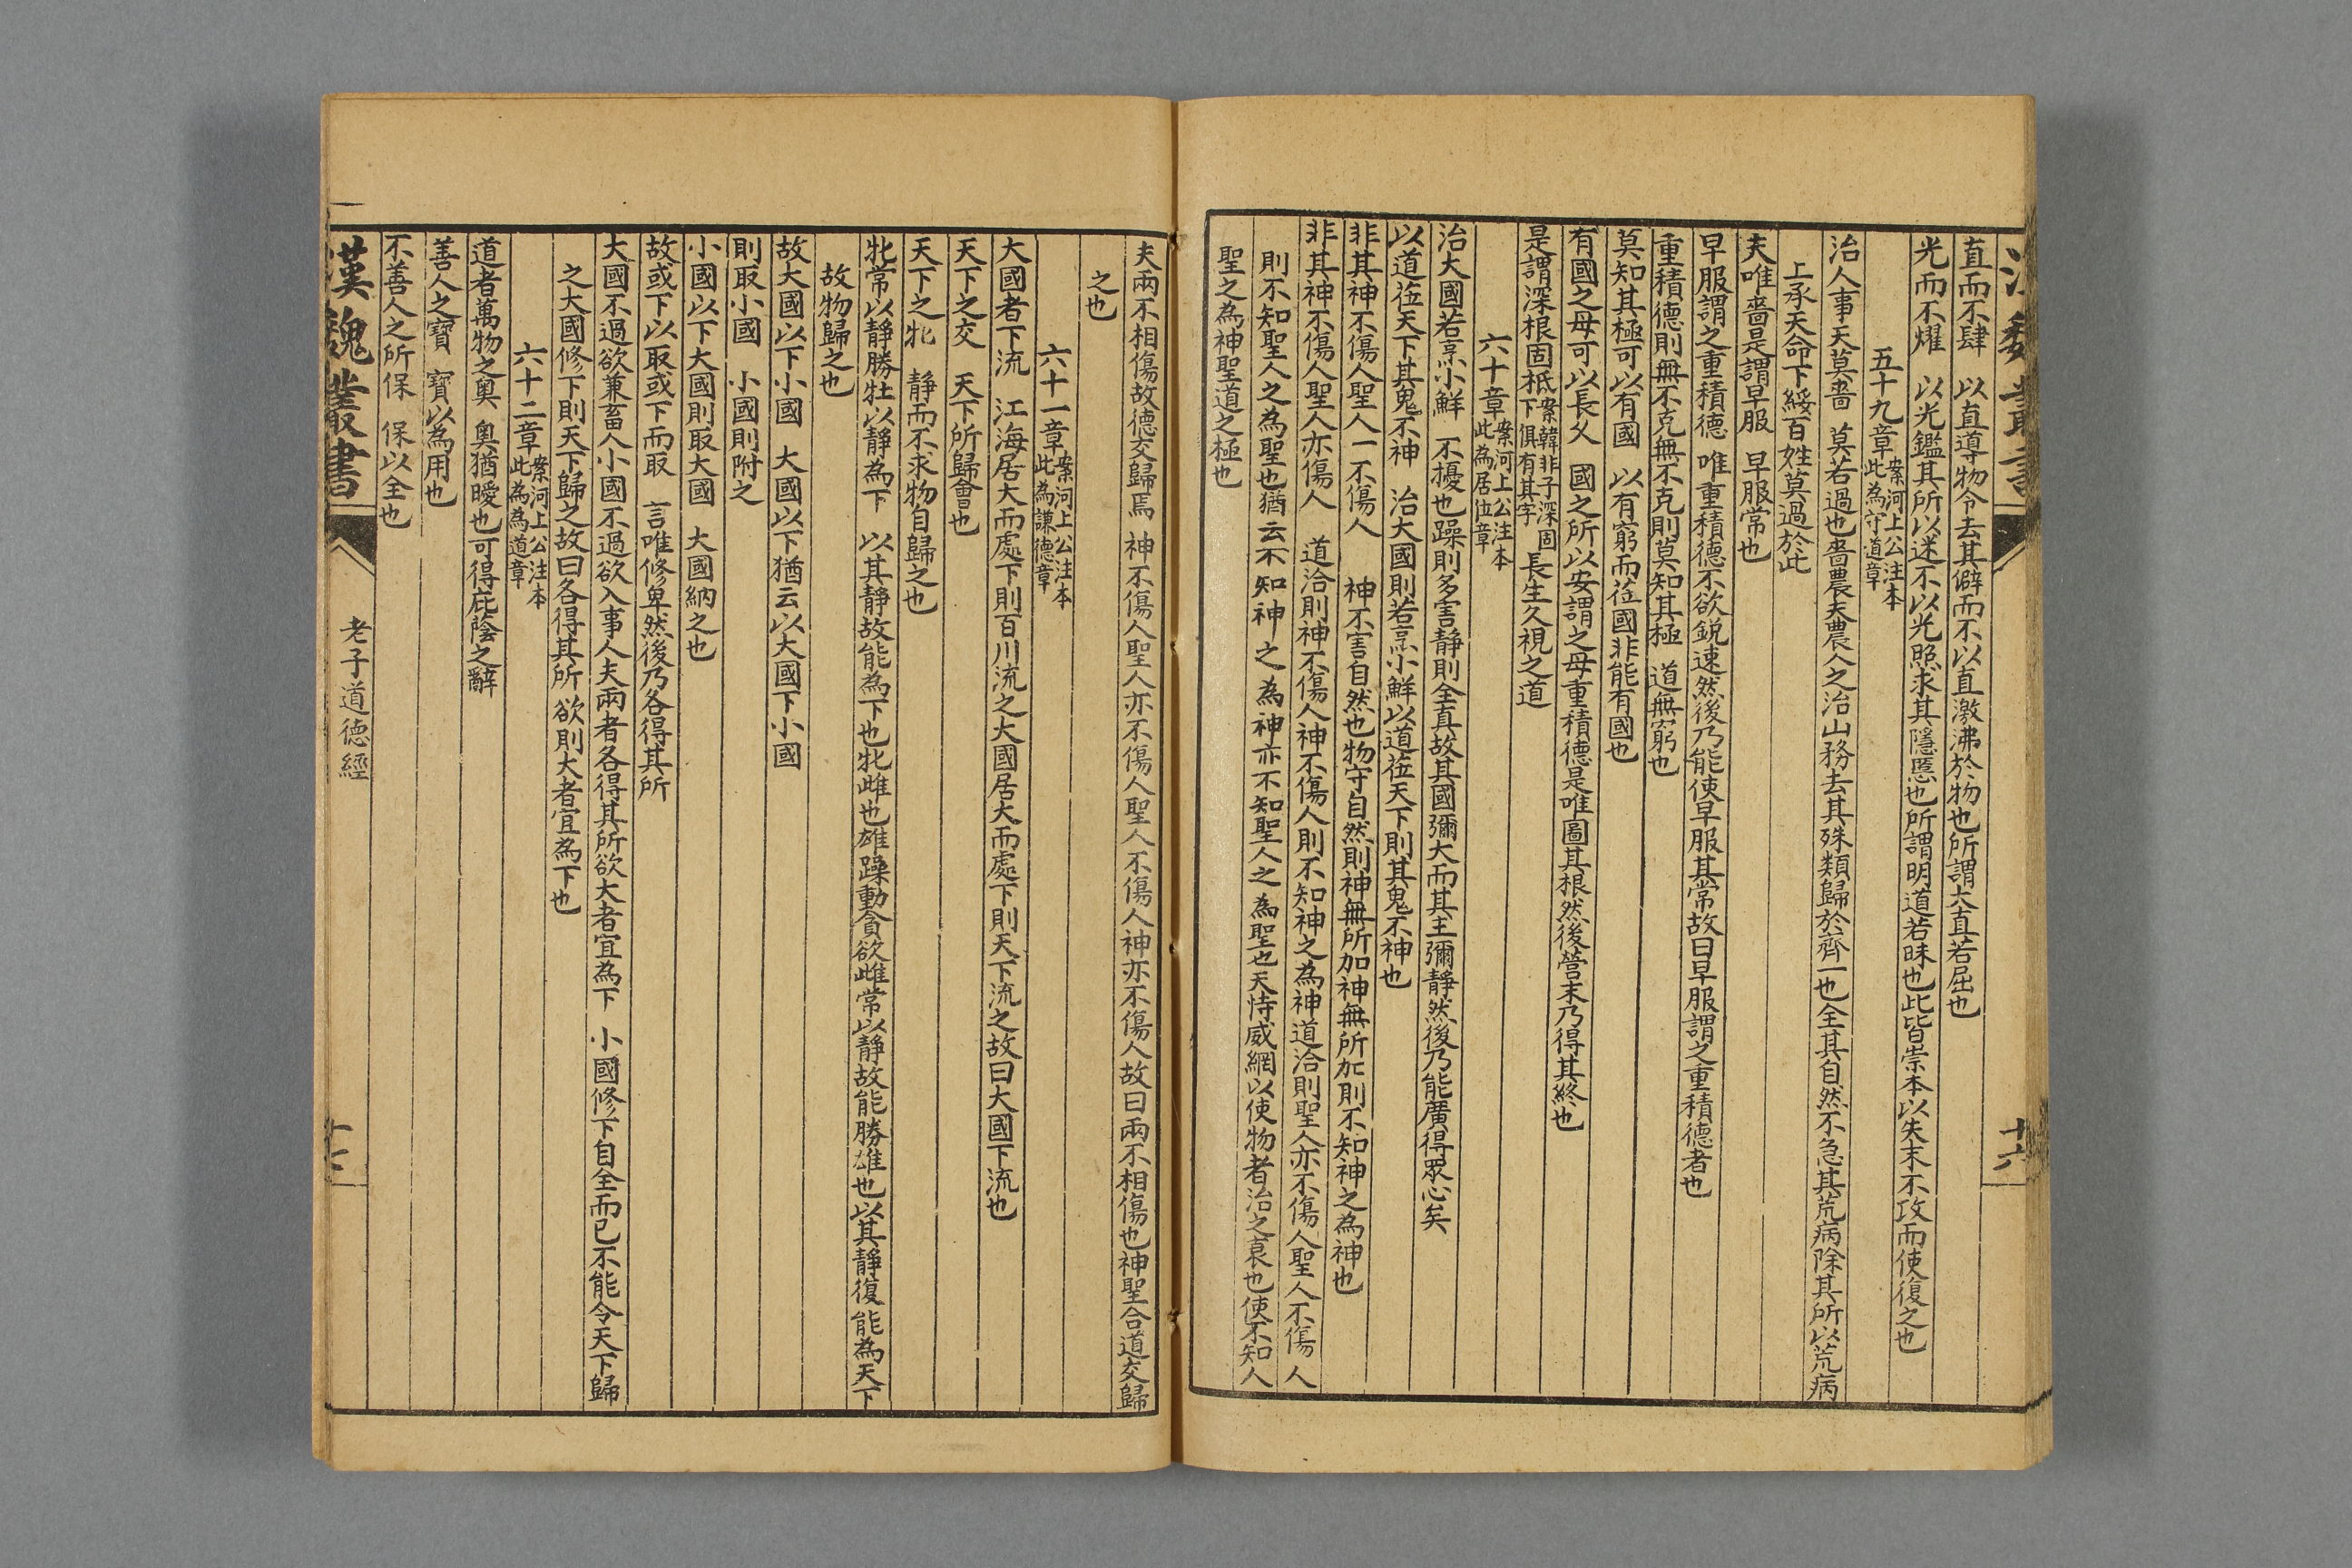 直而不肆　以直導物令去其僻而不以直激沸於物也所謂大直若屈也
光而不燿　以光鑑其所以迷不以光照求其隱慝也所謂明道若昧也此皆崇本以失末不攻而使復之也
五十九章案河上公注本此為守道章
治人事天莫嗇　莫若過也嗇農夫農人之治山務去其殊類歸於齊一也全其自然不急其荒病除其所以荒病
上承天命下綏百姓莫過於此
夫唯嗇是謂早服　早服常也
早服謂之重積德　唯重積德不欲銳速然後乃能使早服其常故曰早服謂之重積德者也
重積德則無不克無不克則莫知其極　道無窮也
莫知其極可以有國　以有窮而莅國非能有國也
有國之母可以長久　國之所以安謂之母重積德是唯圖其根然後營末乃得其終也
是謂深根固柢案韓非子深固下俱有其字長生久視之道
六十章案河上公注本此為居位章
治大國若烹小鮮　不擾也躁則多害靜則全真故其國彌大而其主彌靜然後乃能廣得眾心矣
以道莅天下其鬼不神　治大國則若烹小鮮以道莅天下則其鬼不神也
非其神不傷人聖人一不傷人　神不害自然也物守自然則神無所加神無所加則不知神之為神也
非其神不傷人聖人亦傷人　道洽則神不傷人神不傷人則不知神之為神道洽則聖人亦不傷人聖人不傷人
則不知聖人之為聖也猶云不知神之為神亦不知聖人之為聖也夫恃威網以使物者治之衰也使不知人
聖之為神聖道之極也
漢魏叢書
十六
夫兩不相傷故德交歸焉　神不傷人聖人亦不傷人聖人不傷人神亦不傷人故曰兩不相傷也神聖合道交歸
之也
六十一章案河上公注本此為謙德章
大國者下流　江海居大而處下則百川流之大國居大而處下則天下流之故曰大國下流也
天下之交　天下所歸會也
天下之牝　靜而不求物自歸之也
牝常以靜勝牡以靜為下　以其靜故能為下也牝雌也雄躁動貪欲雌常以靜故能勝雄也以其靜復能為天下
故物歸之也
故大國以下小國　大國以下猶云以大國下小國
則取小國　小國則附之
小國以下大國則取大國　大國納之也
故或下以取或下而取　言唯修卑然後乃各得其所
大國不過欲兼畜人小國不過欲入事人夫兩者各得其所欲大者宜為下　小國修下自全而已不能令天下歸
之大國修下則天下歸之故曰各得其所欲則大者宜為下也
六十二章案河上公注本此為為道章
道者萬物之奧　奧猶曖也可得庇蔭之辭
善人之寶　寶以為用也
不善人之所保　保以全也
漢魏叢書
老子道德經
十七